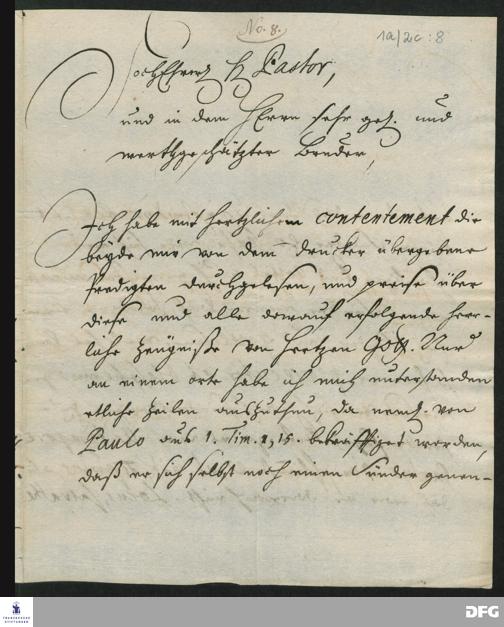 No. 8.
1a/2c:8
HochEhrw. H Pastor,
und in dem HErrn sehr gel. und
werthgeschätzter Bruder,
Ich habe mit hertzlichem contentement die
beyde mir von dem drucker übergebene
Predigten durchgelesen, und preise über
diese und alle darauf erfolgende herr-
liche zeugniße von Hertzen Gott. Nur
an einem orte habe ich mich unterstanden
etliche zeilen auszuthun, da neml. von
Paulo aus 1. Tim. 1, 15. bekräfftiget worden,
daß er sich selbst noch einen Sünder genen-
FRANCKESCHE
STIFTUNGEN
DFG